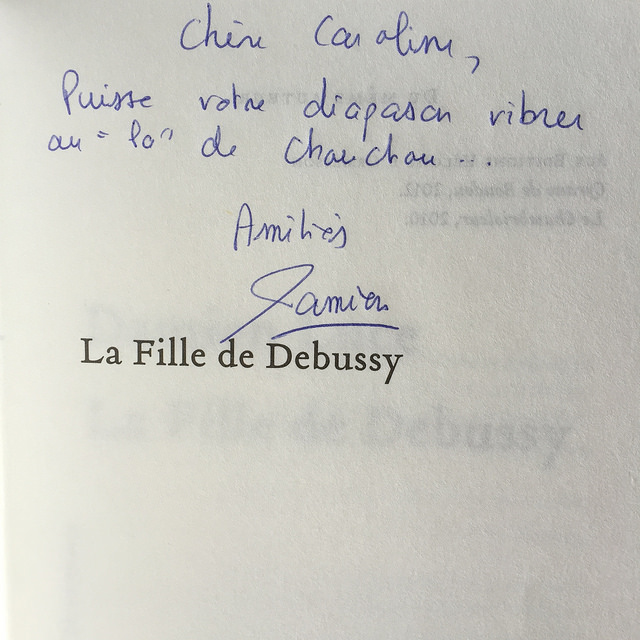 Chère Caroline,
Puisse votre diapason vibrer
au "la" de Chouchou...
Amitiés
Damien
La Fille de Debussy